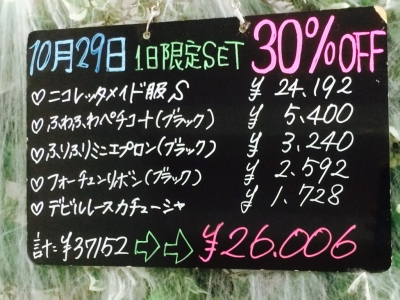 10月29日 1日限定SET 30%OFF
♡ニコレッタメイド服S ¥24.192
♡ふわふわペチコート(ブラック) ¥5.400
♡ふりふりミニエプロン(ブラック) ¥3.240
♡フォーチュンリボン(ブラック) ¥2.592
♡デビルレースカチューシャ ¥1.728
計=¥37152⇨⇨¥26.006